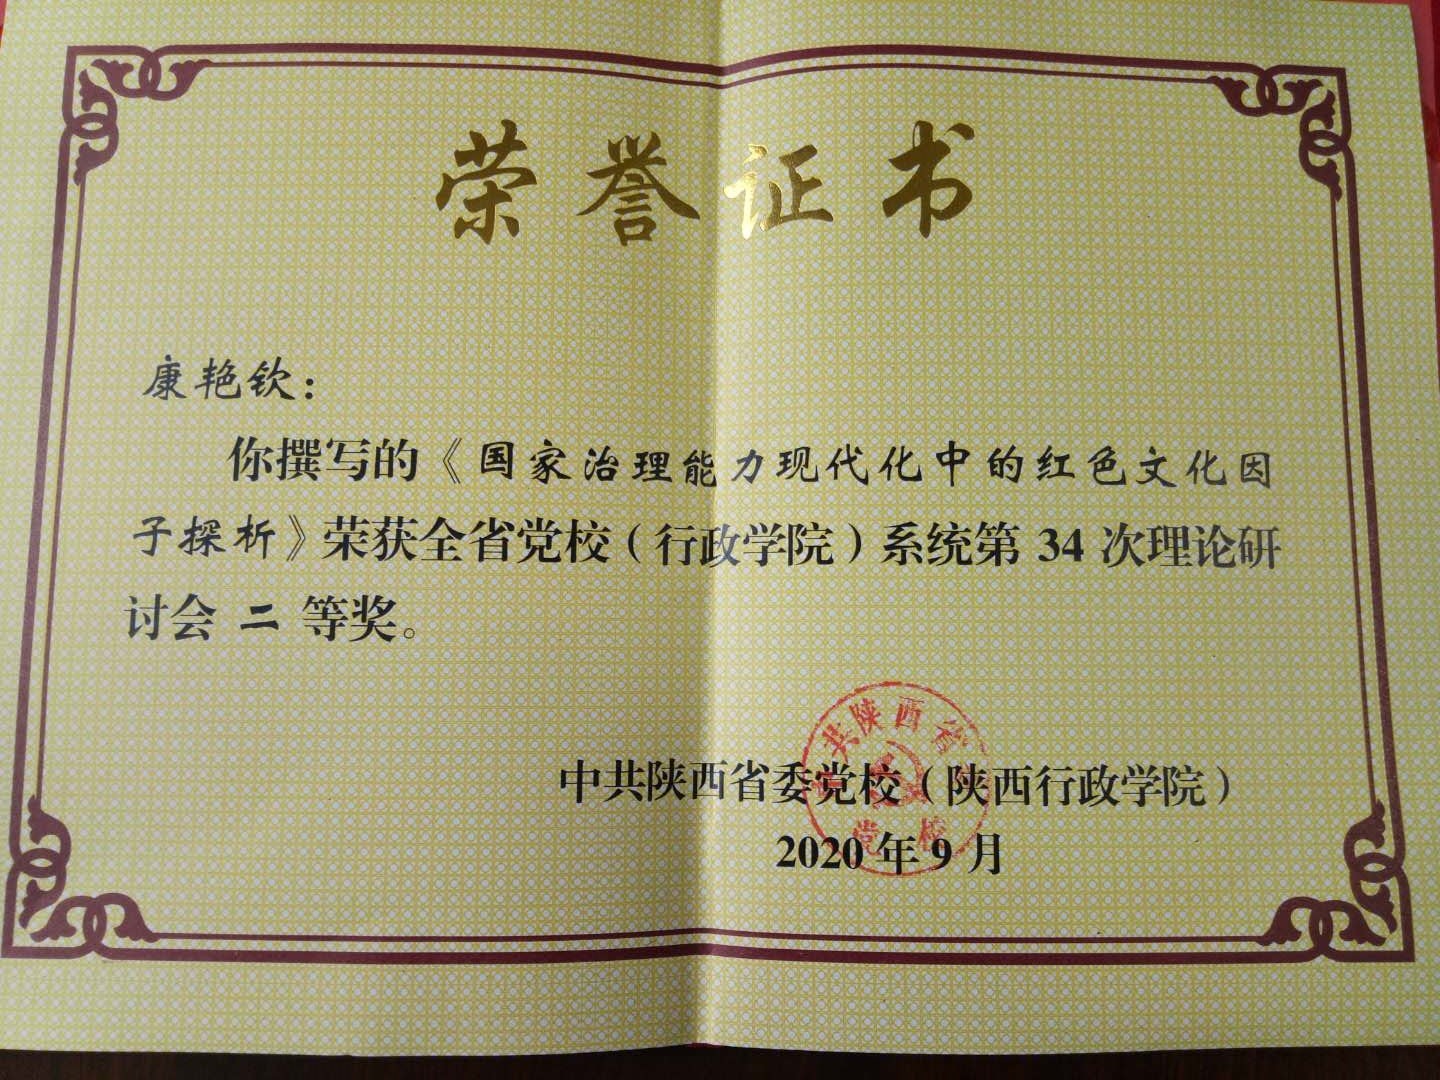 荣誉证书
康艳钦：
你撰写的《国家治理能力现代化中的红色文化因
子探析》荣获全省党校（行政学院）系统第 34 次理论研
讨会 二 等奖。
中共陕西省委党校（陕西行政学院）
2020 年 9 月
共陕西省
党校